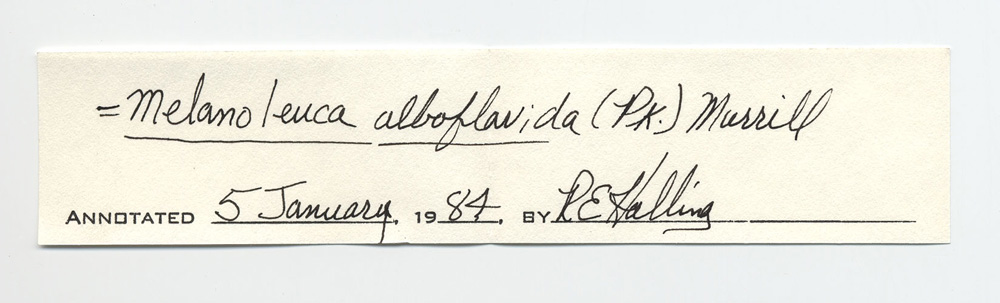 = Melanoleuca alboflavida (Pk.) Murrill
ANNOTATED 5 January, 1984, BY R E Halling